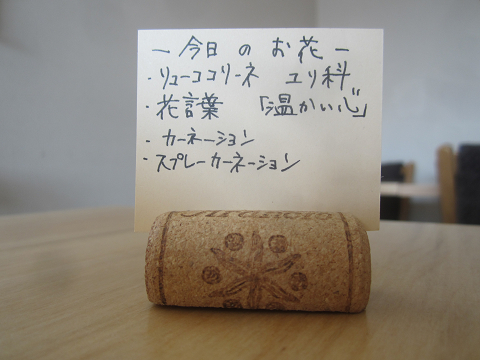 ー 今日 の お花 ー
・リューココリーネ ユリ科
・花言葉 「温かい心」
・カーネーション
・スプレーカーネーション